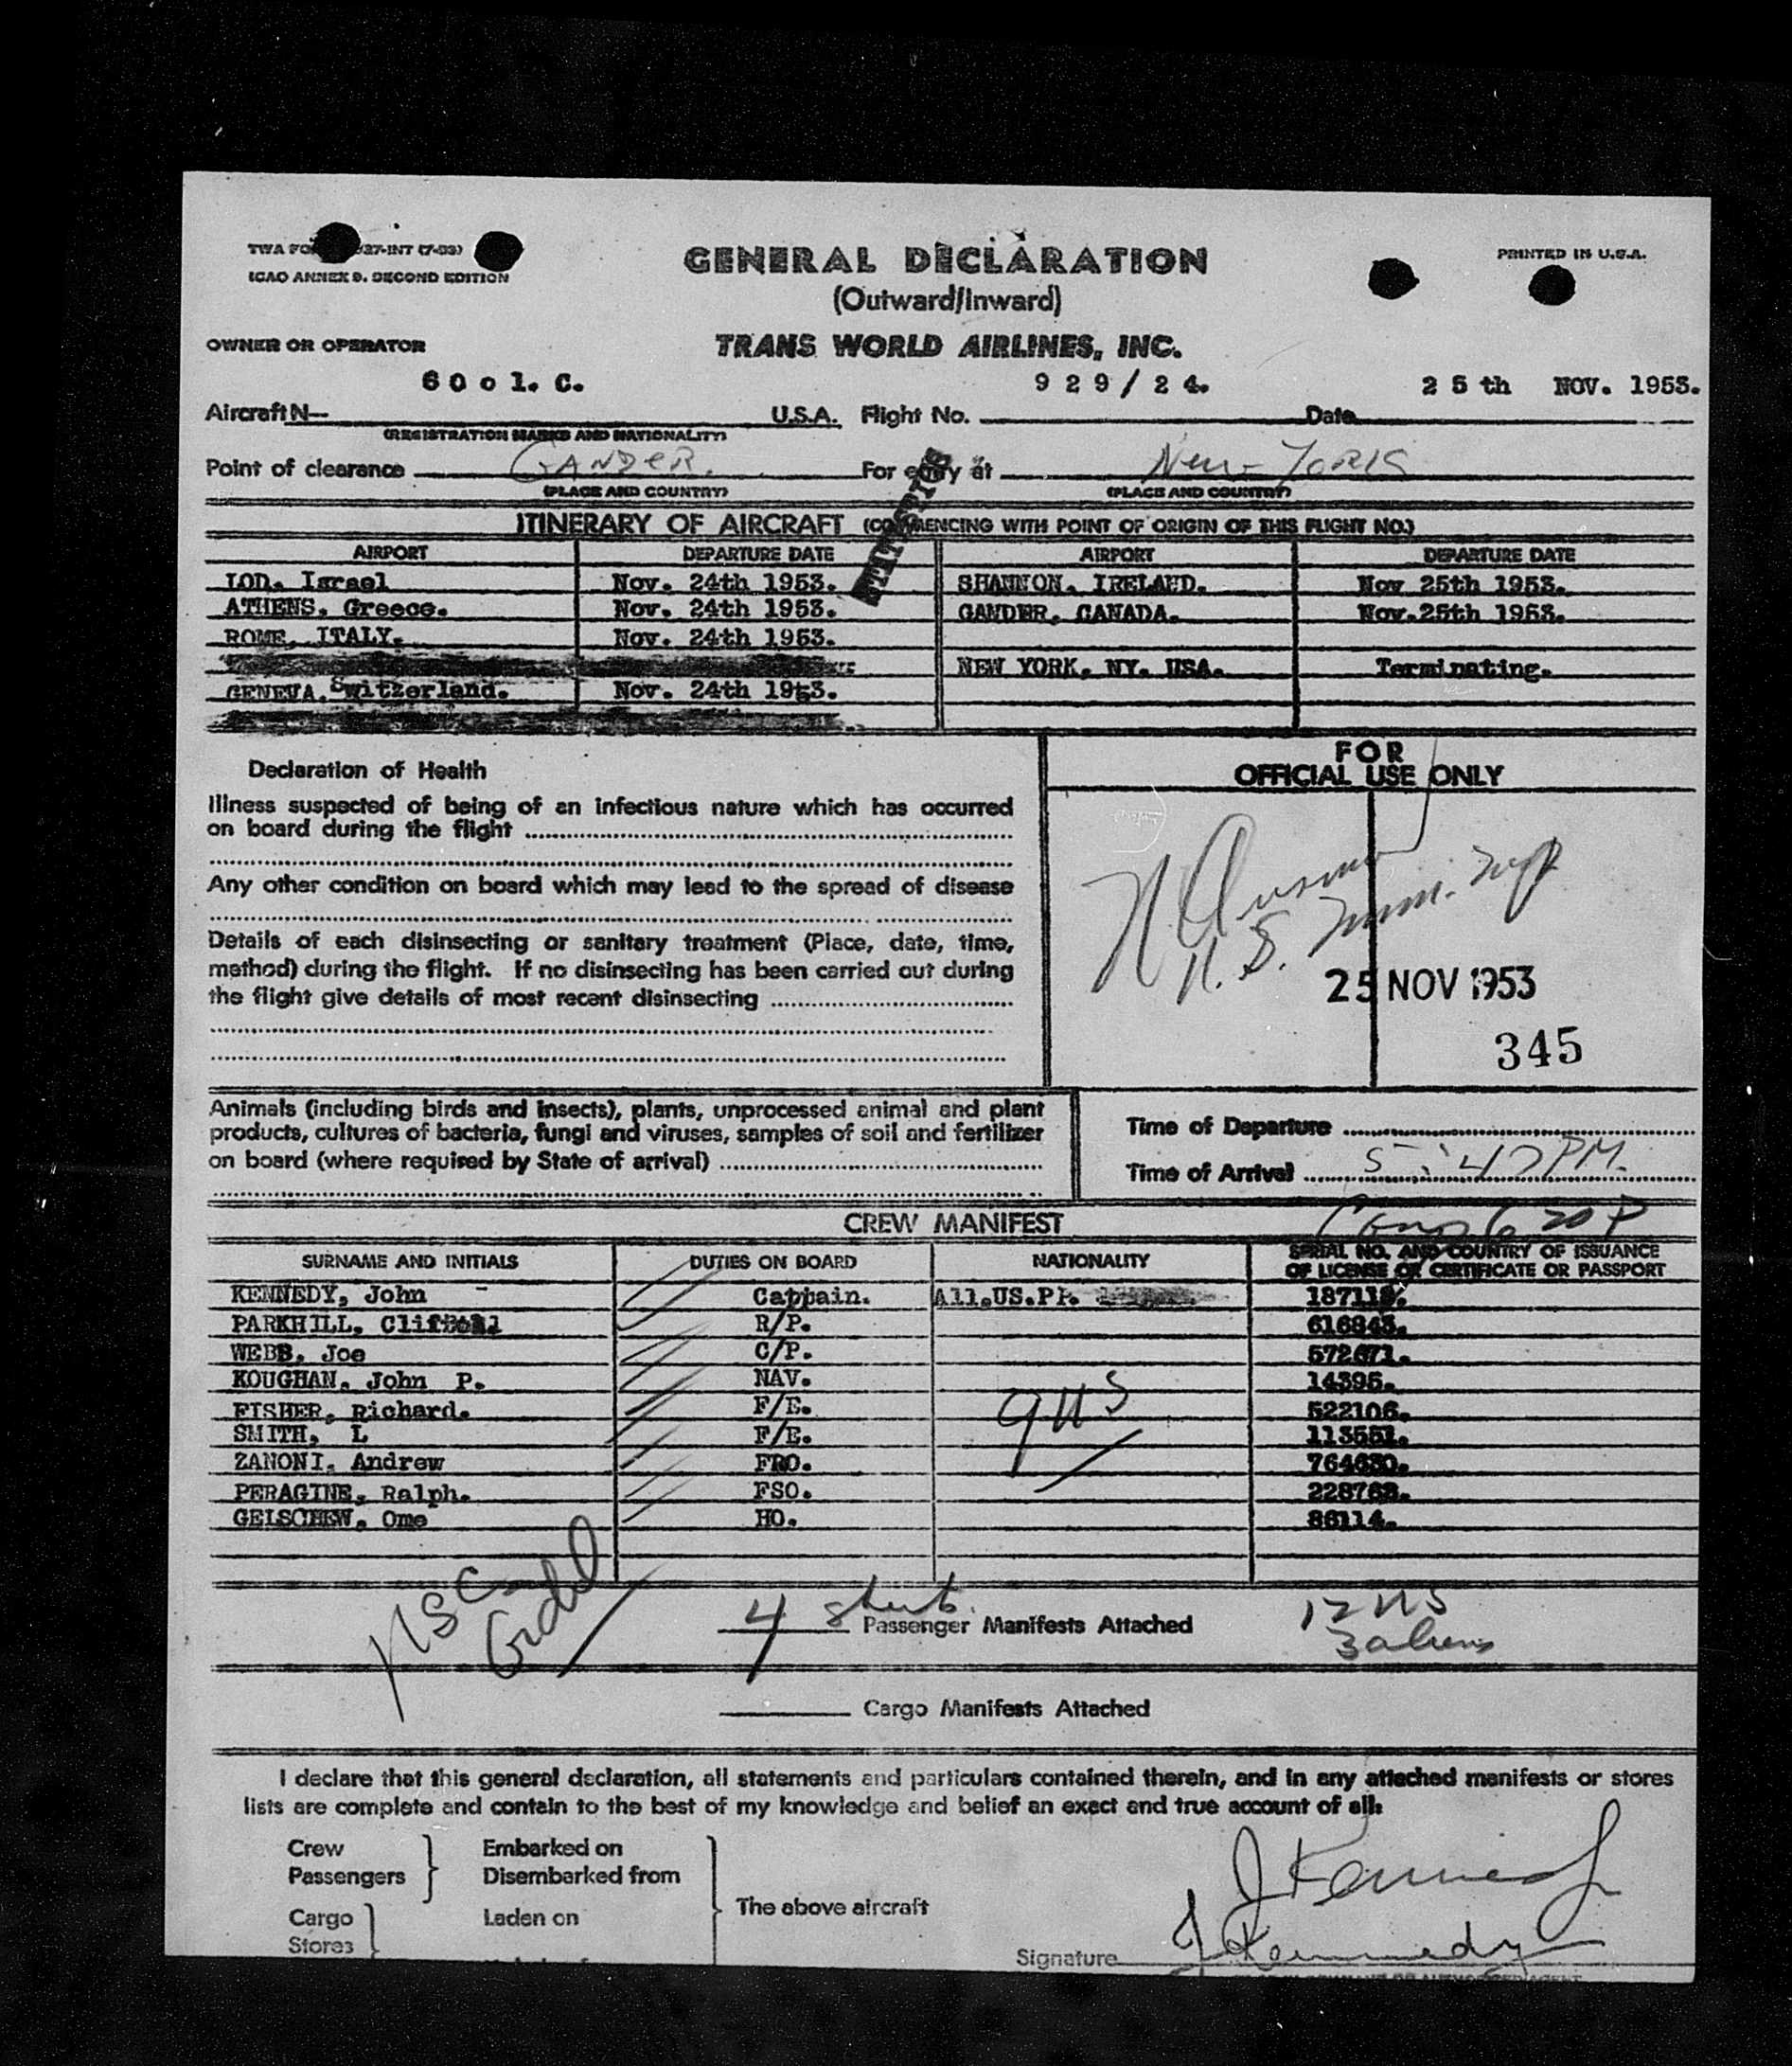 GENERAL DECLARATION
PRINTED IN U.S.A.
ICAO ANNEX 9. SECOND EDITION
(Outward/Inward)
OWNER OR OPERATOR TRANS WORLD AIRLINES, INC.
6001. C. 929/24. 25th NOV. 1953.
Aircraft N- U.S.A. Flight No. Date
(REGISTRATION MARKS AND NATIONALITY)
Point of clearance GANDER. For entry at New-York
(PLACE AND COUNTRY) (PLACE AND COUNTRY)
ITINERARY OF AIRCRAFT (COMMENCING WITH POINT OF ORIGIN OF THIS FLIGHT NO.)
AIRPORT DEPARTURE DATE AIRPORT DEPARTURE DATE
LOD. Israel Nov. 24th 1953. SHANNON. IRELAND. Nov 25th 1953.
ATHENS, Greece. Nov. 24th 1953. GANDER, CANADA. Nov.25th 1953.
ROME, ITALY. Nov. 24th 1953.
NEW YORK, NY. USA. Terminating.
GENEVA, Switzerland. Nov. 24th 1953.
FOR
OFFICIAL USE ONLY
Declaration of Health
Illness suspected of being of an infectious nature which has occurred
on board during the flight
Any other condition on board which may lead to the spread of disease
Details of each disinsecting or sanitary treatment (Place, date, time,
method) during the flight. If no disinsecting has been carried out during
the flight give details of most recent disinsecting
25 NOV 1953
345
Animals (including birds and insects), plants, unprocessed animal and plant
products, cultures of bacteria, fungi and viruses, samples of soil and fertilizer
on board (where required by State of arrival)
Time of Departure
Time of Arrival 5:47 PM.
CREW MANIFEST
SURNAME AND INITIALS DUTIES ON BOARD NATIONALITY SERIAL NO. AND COUNTRY OF ISSUANCE
OF LICENSE OR CERTIFICATE OR PASSPORT
KENNEDY, John Captain. All.US.
PARKHILL, R/P.
WEBB, Joe C/P.
KOUGHAN, John P. NAV. 14395.
FISHER, Richard. F/E. 522106.
SMITH, L F/E.
ZANONI, Andrew FRO.
PERAGINE, Ralph. FSO.
GELSCHEW, Ome HO. 86114.
9 US
4 sheets Passenger Manifests Attached
12 US
3 aliens
Cargo Manifests Attached
I declare that this general declaration, all statements and particulars contained therein, and in any attached manifests or stores
lists are complete and contain to the best of my knowledge and belief an exact and true account of all:
Crew Embarked on
Passengers Disembarked from
The above aircraft
Cargo Laden on
Stores
J Kennedy
Signature J Kennedy